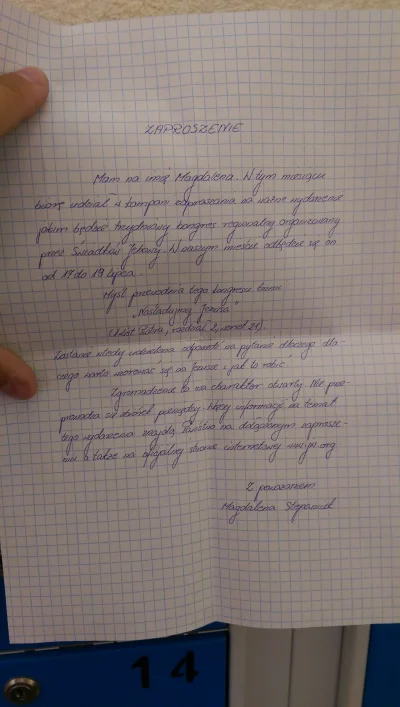 ZAPROSZENIE
Mam na imię Magdalena. W tym miesiącu
biorę udział w kampanii zapraszania na ważne wydarzenie
jakim będzie trzydniowy kongres regionalny organizowany
przez Świadków Jehowy. W naszym mieście odbędzie się on
od 17 do 19 lipca.
Myśl przewodnia tego kongresu brzmi
„Naśladujmy Jezusa"
(1 List Piotra, rozdział 2, werset 21).
Zostanie wtedy udzielona odpowiedź na pytanie dlaczego dla-
czego warto wzorować się na Jezusie i jak to robić.
Zgromadzenie to ma charakter otwarty. Nie prze-
prowadza się zbiórek pieniędzy. Więcej informacji na temat
tego wydarzenia znajdą Państwo na dołączonym zaprosze-
niu a także na oficjalnej stronie internetowej www.jw.org
Z poważaniem
Magdalena
14